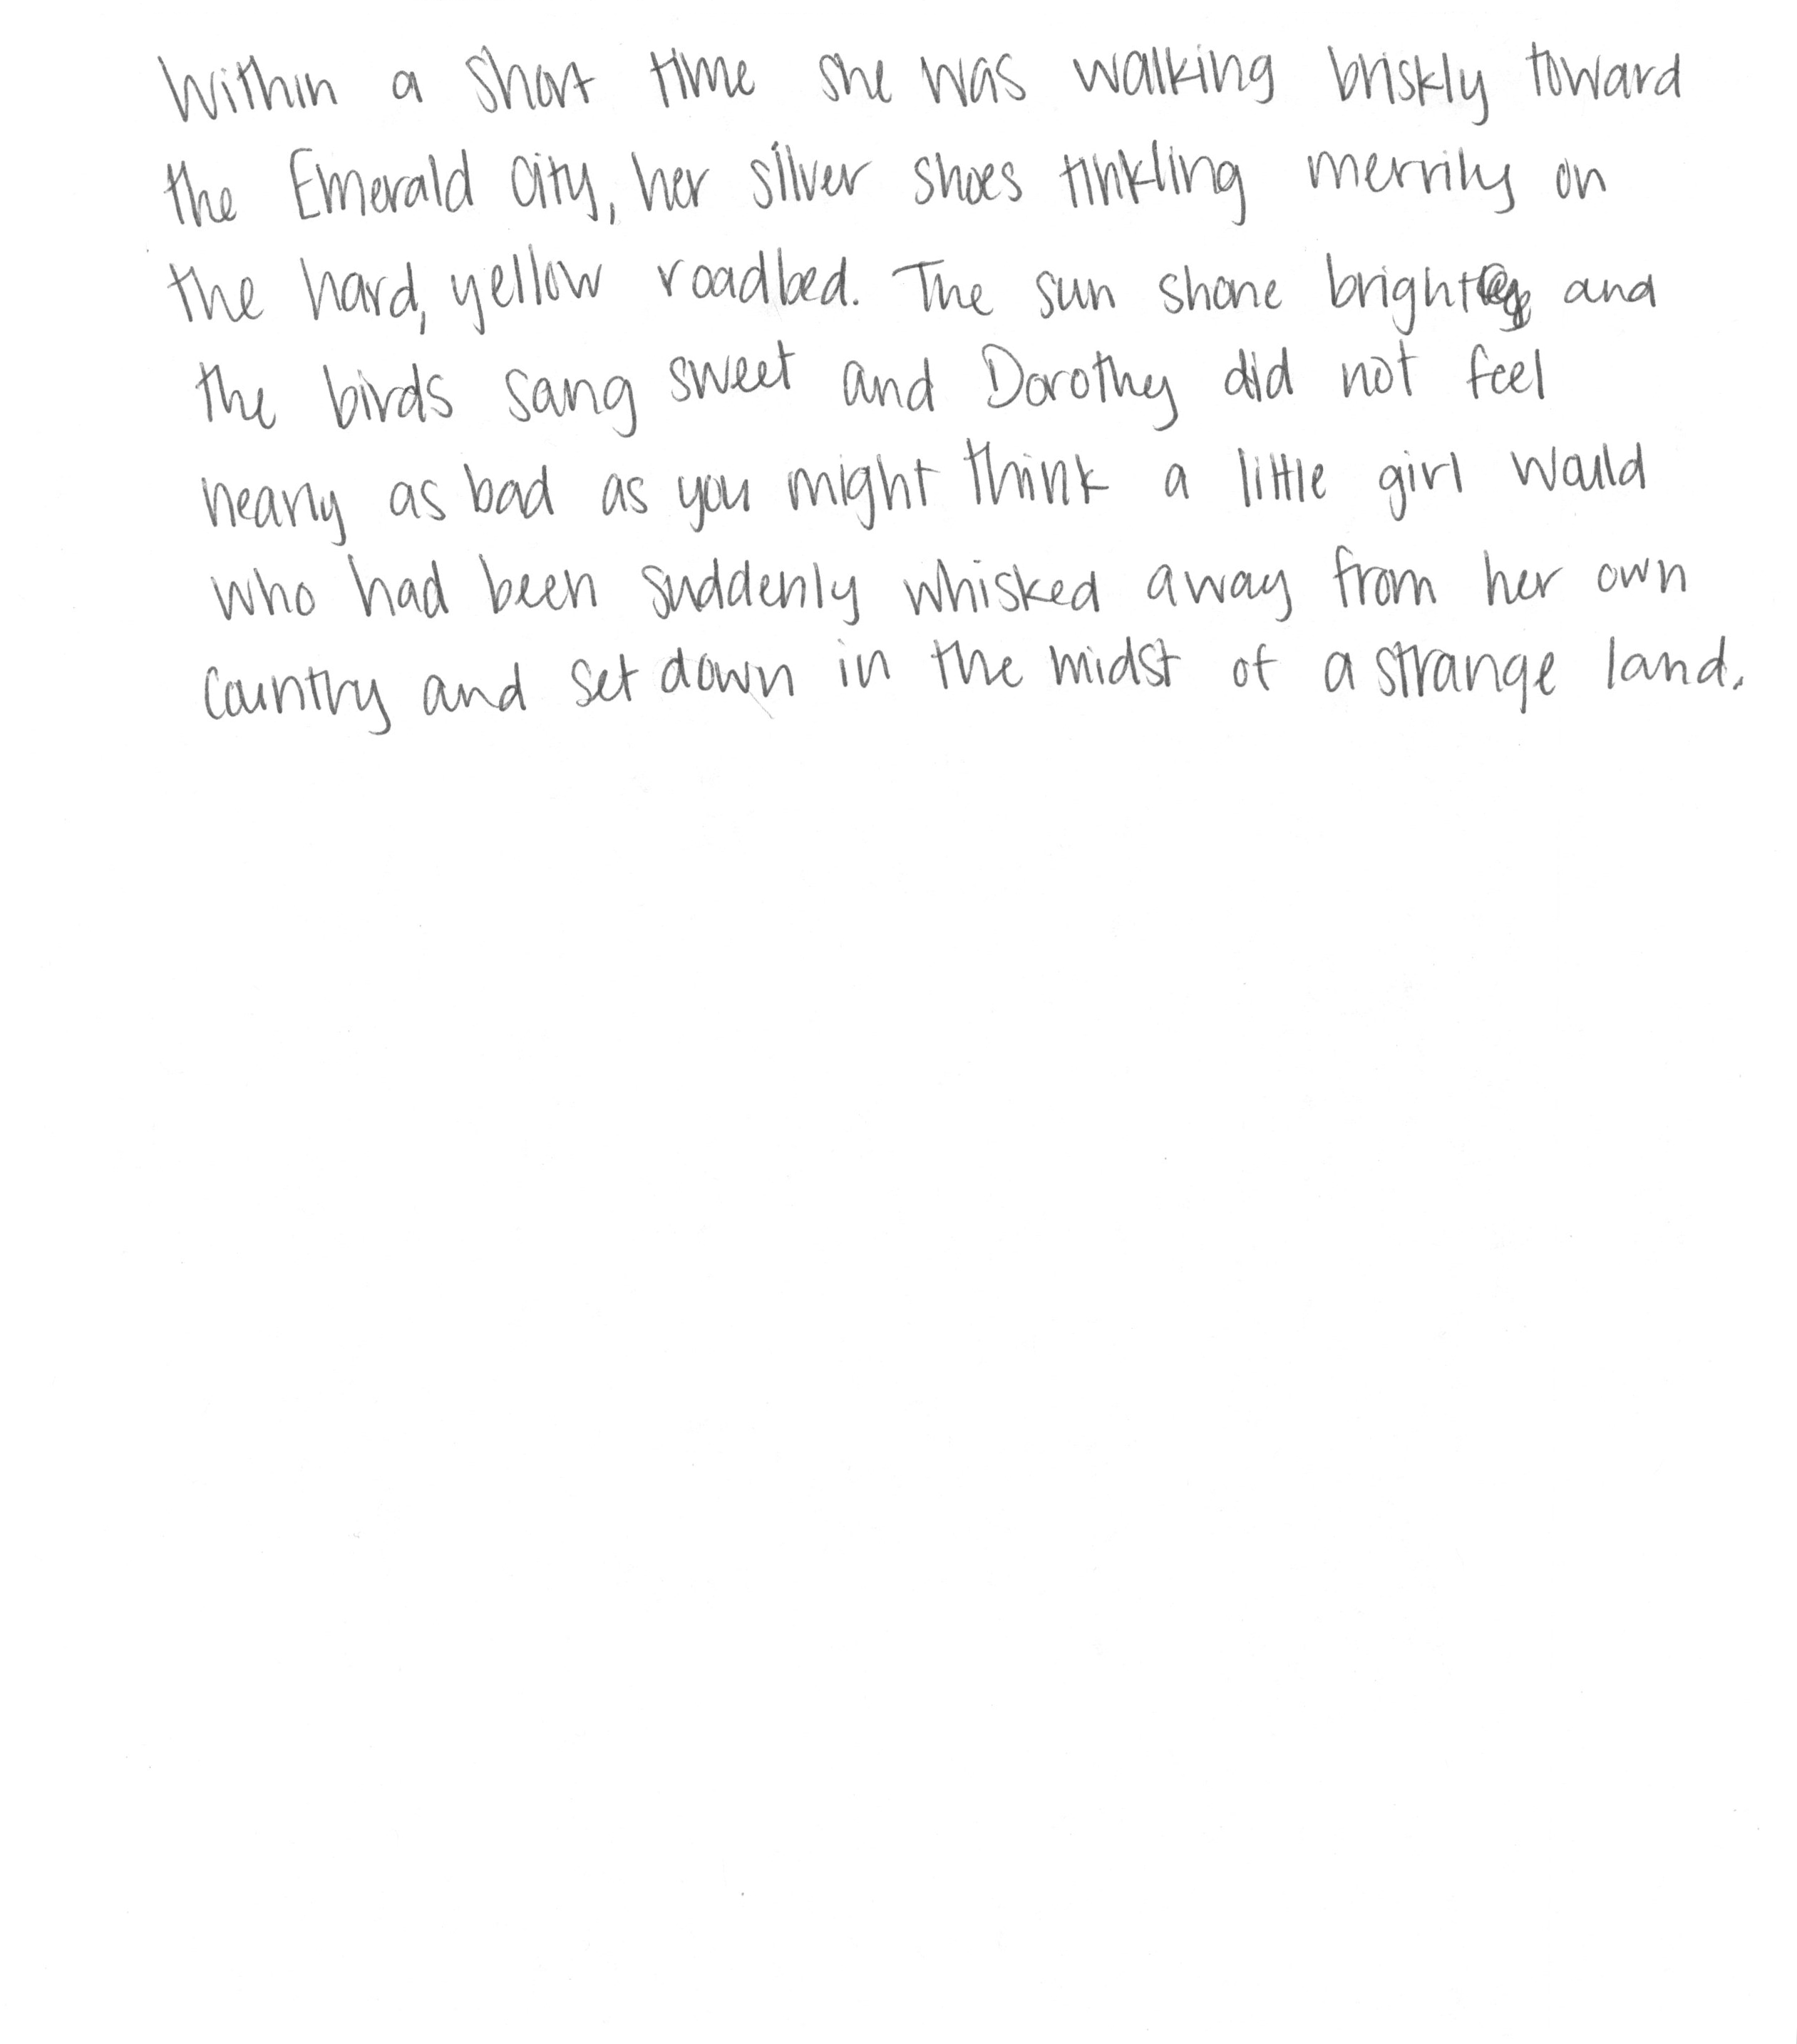 Within a short time she was walking briskly toward
the Emerald City, her silver shoes tinkling merrily on
the hard, yellow roadbed. The sun shone bright and
the birds sang sweet and Dorothy did not feel
nearly as bad as you might think a little girl would
who had been suddenly whisked away from her own
country and set down in the midst of a strange land.